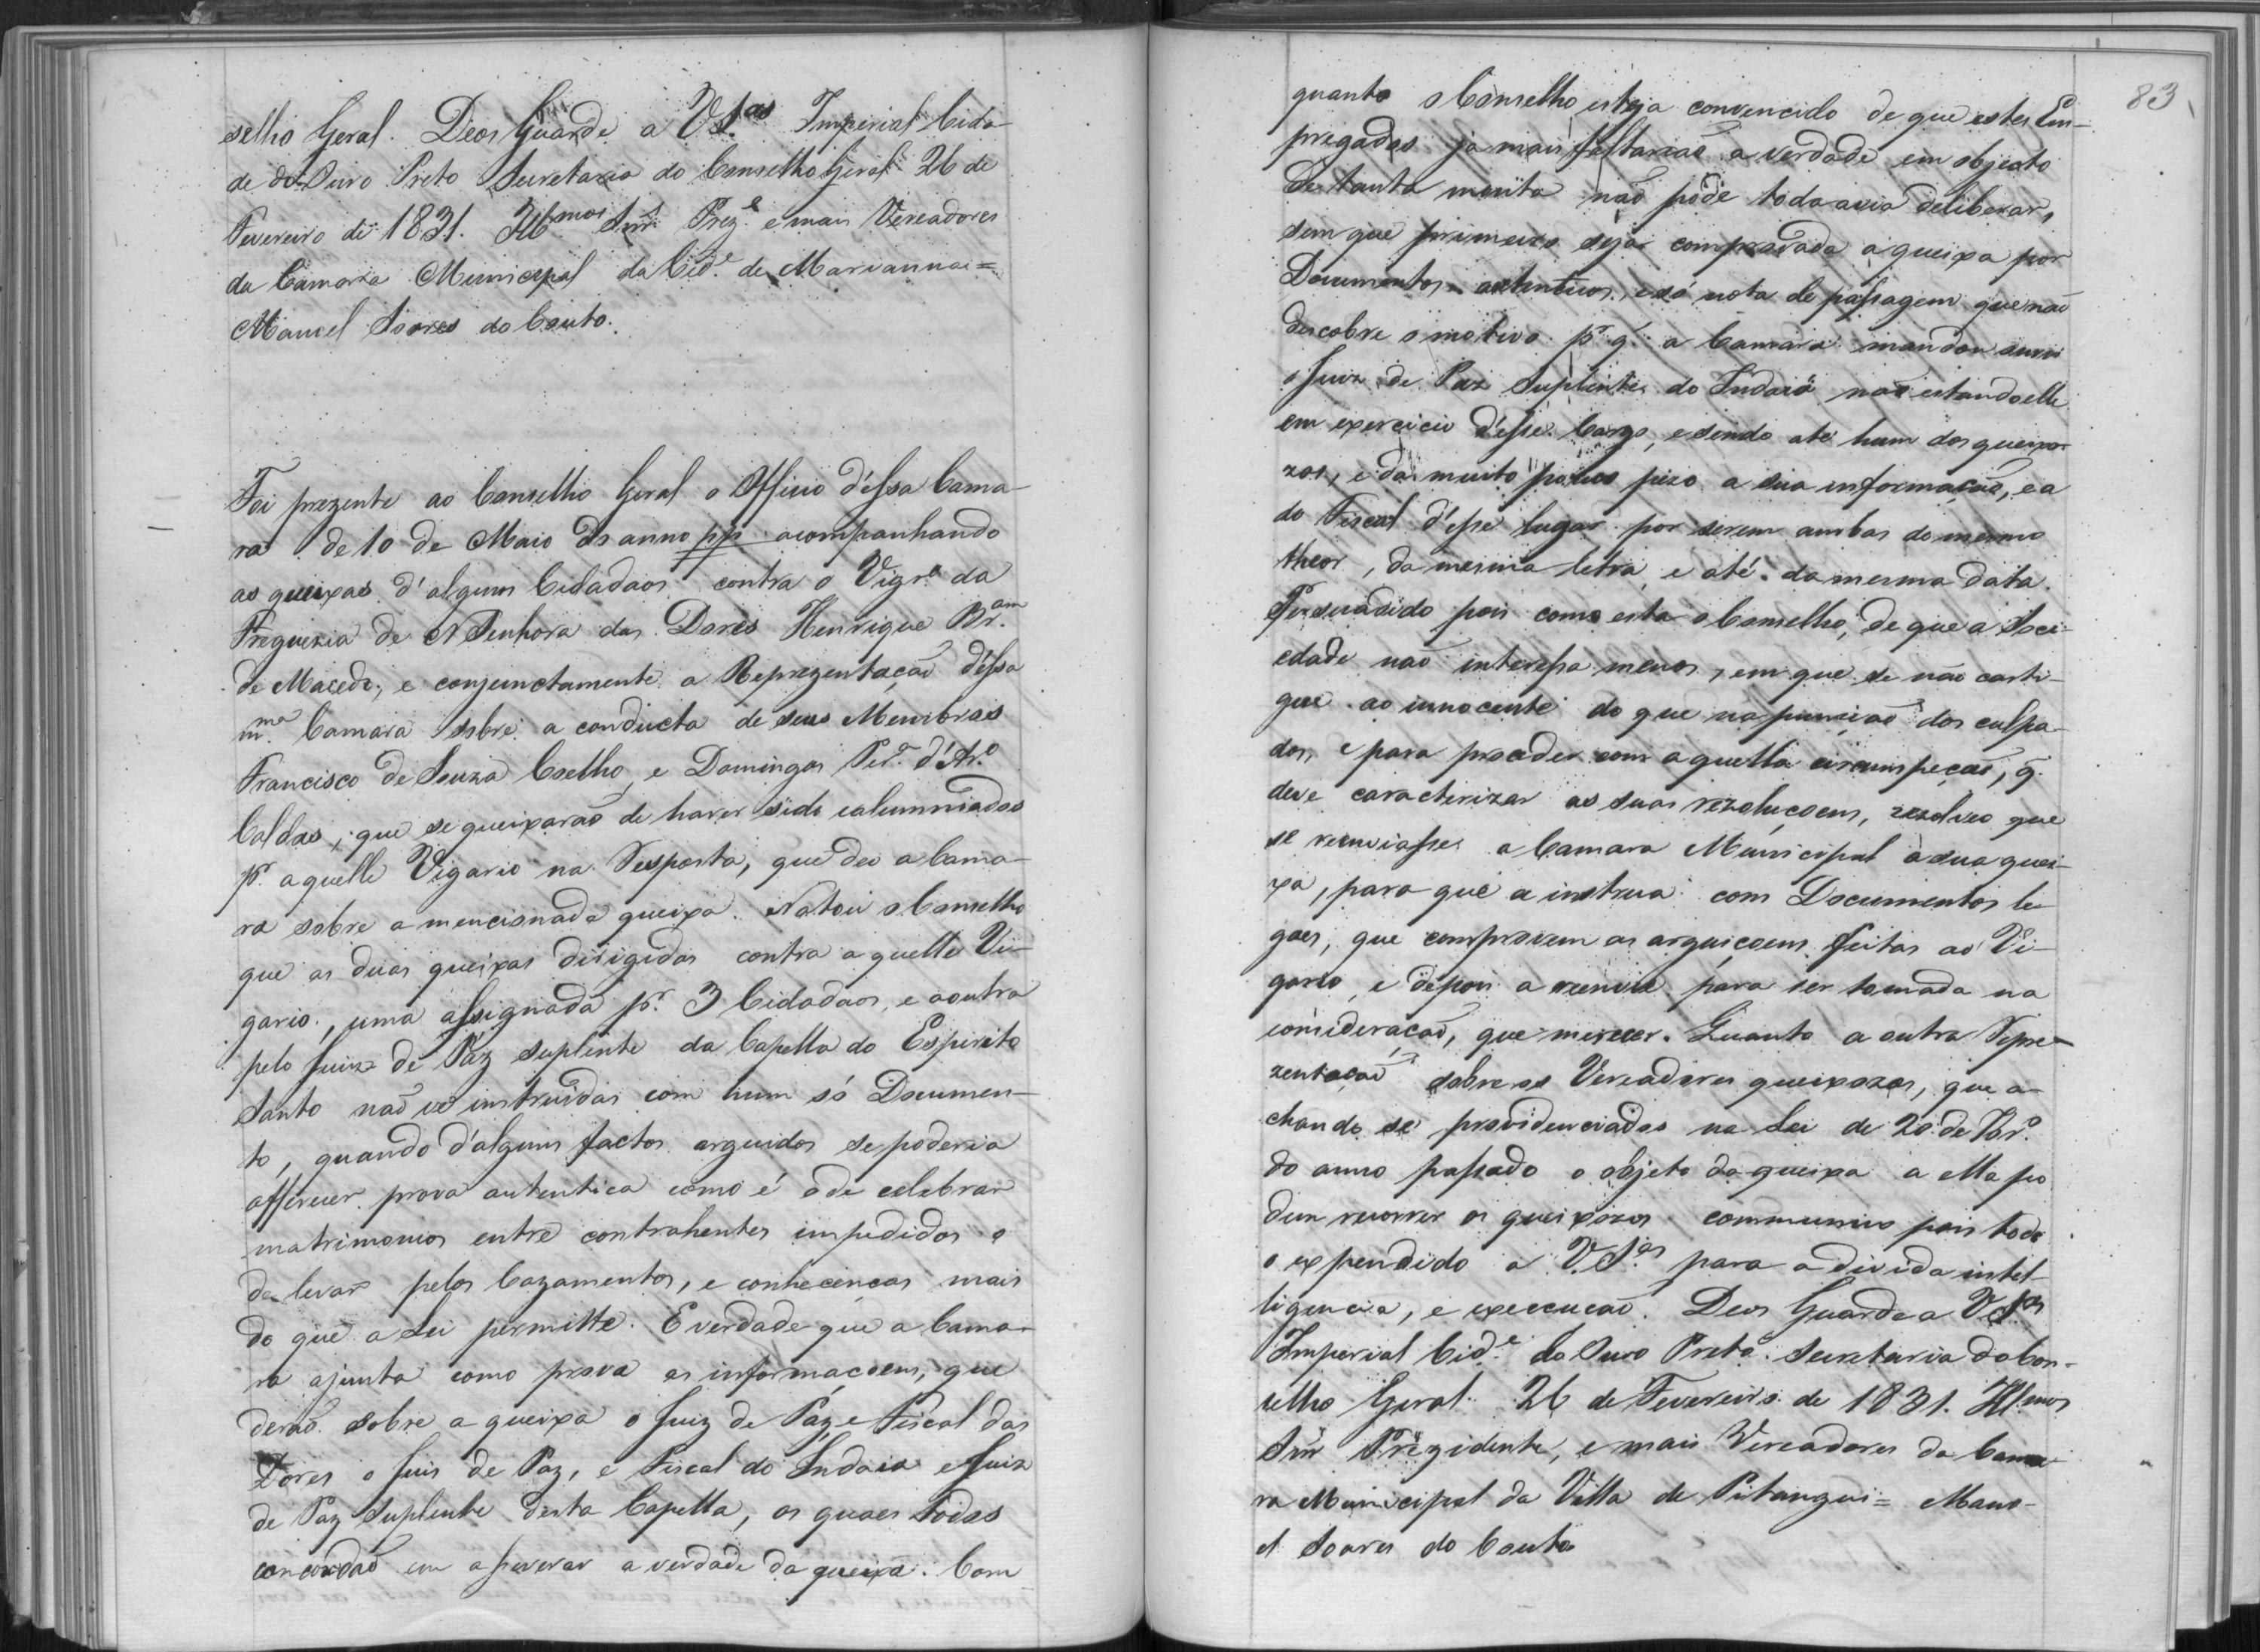 selho Geral. Deos Guarde a VS.as Imperial Cida-
de do Ouro Preto Secretaria do Conselho Geral 26 de
Fevereiro de 1831. Illmos Snrs Prez.e e mais Vereadores
da Camara Municipal da Cid.e de Marianna=
Manoel Soares do Couto.
Foi prezente ao Conselho Geral o Officio d'essa Cama-
ra de 10 de Maio do anno pp acompanhando
as queixas d'alguns Cidadaos contra o Vigr.o da
Freguezia de N Senhora das Dores Henrique Br.am
de Macedo, e conjunctamente a Reprezentação d'essa
m.ma Camara sobre a conducta de seus Membros
Francisco de Souza Coelho, e Domingos Per.a d'Ar.o
Caldas, que se queixarão de haver sido calumniados
pr. aquelle Vigario na Resposta, que deo a Cama-
ra sobre a mencionada queixa. Notou o Conselho
que as duas queixas dirigidas contra aquelle Vi-
gario, uma assignada pr. 3 Cidadaos, e a outra
pelo Juiz de Paz suplente da Capella do Espirito
Santo não vê instruidas com hum só Documen-
to, quando d'alguns factos arguidos se poderia
offerecer prova autentica como é o de celebrar
matrimonios entre contrahentes impedidos o
de levar pelos Cazamentos, e conhecenças mais
do que a Lei permitte. E verdade que a Cama-
ra ajunta como prova as informaçoens, que
derão sobre a queixa o Juiz de Páz e Fiscal das
Dores o Juis de Paz, e Fiscal do Indaia e Juiz
de Paz Suplente desta Capella, os quaes todos
concordão em asseverar a verdade da queixa. Com
83
quanto o Conselho esteja convencido de que estes Em-
pregados ja mais faltarião a verdade em objecto
de tanta monta não póde todaavia deliberar,
sem que primeiro seja comprovada a queixa por
Documentos autenticos, e só nota de passagem que não
descobre o motivo pr. q. a Camara mandou ouvir
o Juiz de Paz Suplente do Indaiá não estando elle
em exercicio d'esse Cargo, e sendo até hum dos queixo-
zos, e da muito pouco pezo a sua informação, e a
do Fiscal d'esse lugar por serem ambas do mesmo
theor, da mesma letra, e até da mesma data.
Persuadido pois como esta o Conselho, de que a Soci-
edade não interessa menos, em que se não casti-
gue ao innocente do que na punição dos culpa-
dos, e para proceder com aquella circumspeção, q.
deve caracterizar as suas rezoluçoens, rezolveo que
se reenviasse a Camara Municipal a sua quei-
xa, para que a instrua com Documentos le-
gaes, que comprovem as arguiçoens feitas ao Vi-
gario, e depois a reenvie para ser tomada na
consideração, que merecer. Quanto a outra Repre-
zentação sobre os Vereadores queixozos, que a-
chando se providenciado na Lei de 20 de 7br.o
do anno passado o objeto da queixa a ella po
dem recorrer os queixozos communico pois todo
o expendido a V.S.as para a divida intel-
ligencia, e execcução. Deos Guarde a VS.as
Imperial Cid.e do Ouro Preto. Secretaria do Con-
selho Geral 26 de Fevereiro de 1831. Illmos
Snr Prezidente, e mais Vereadores da Cama-
ra Municipal da Villa de Pitangui= Mano-
el Soares do Couto